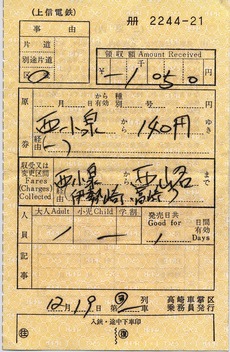 (上信電鉄) 冊 2244-21
事由
片道
別途片道
区 ○
領収額 Amount Received
¥ 千 円
1050
原券
月 日 から 有効 種別 号
西小泉 から 140円 ゆき
経由 (一)
収受又は変更区間 Fares (Charges) Collected
西小泉 から 西山名 まで
経由 伊勢崎 高崎
人員
大人 Adult 小児 Child 学割
1 —
発売日共 Good for 1 日間有効 Days
記事
12月19日 列車
高崎車掌区乗務員発行
入鋏・途中下車印